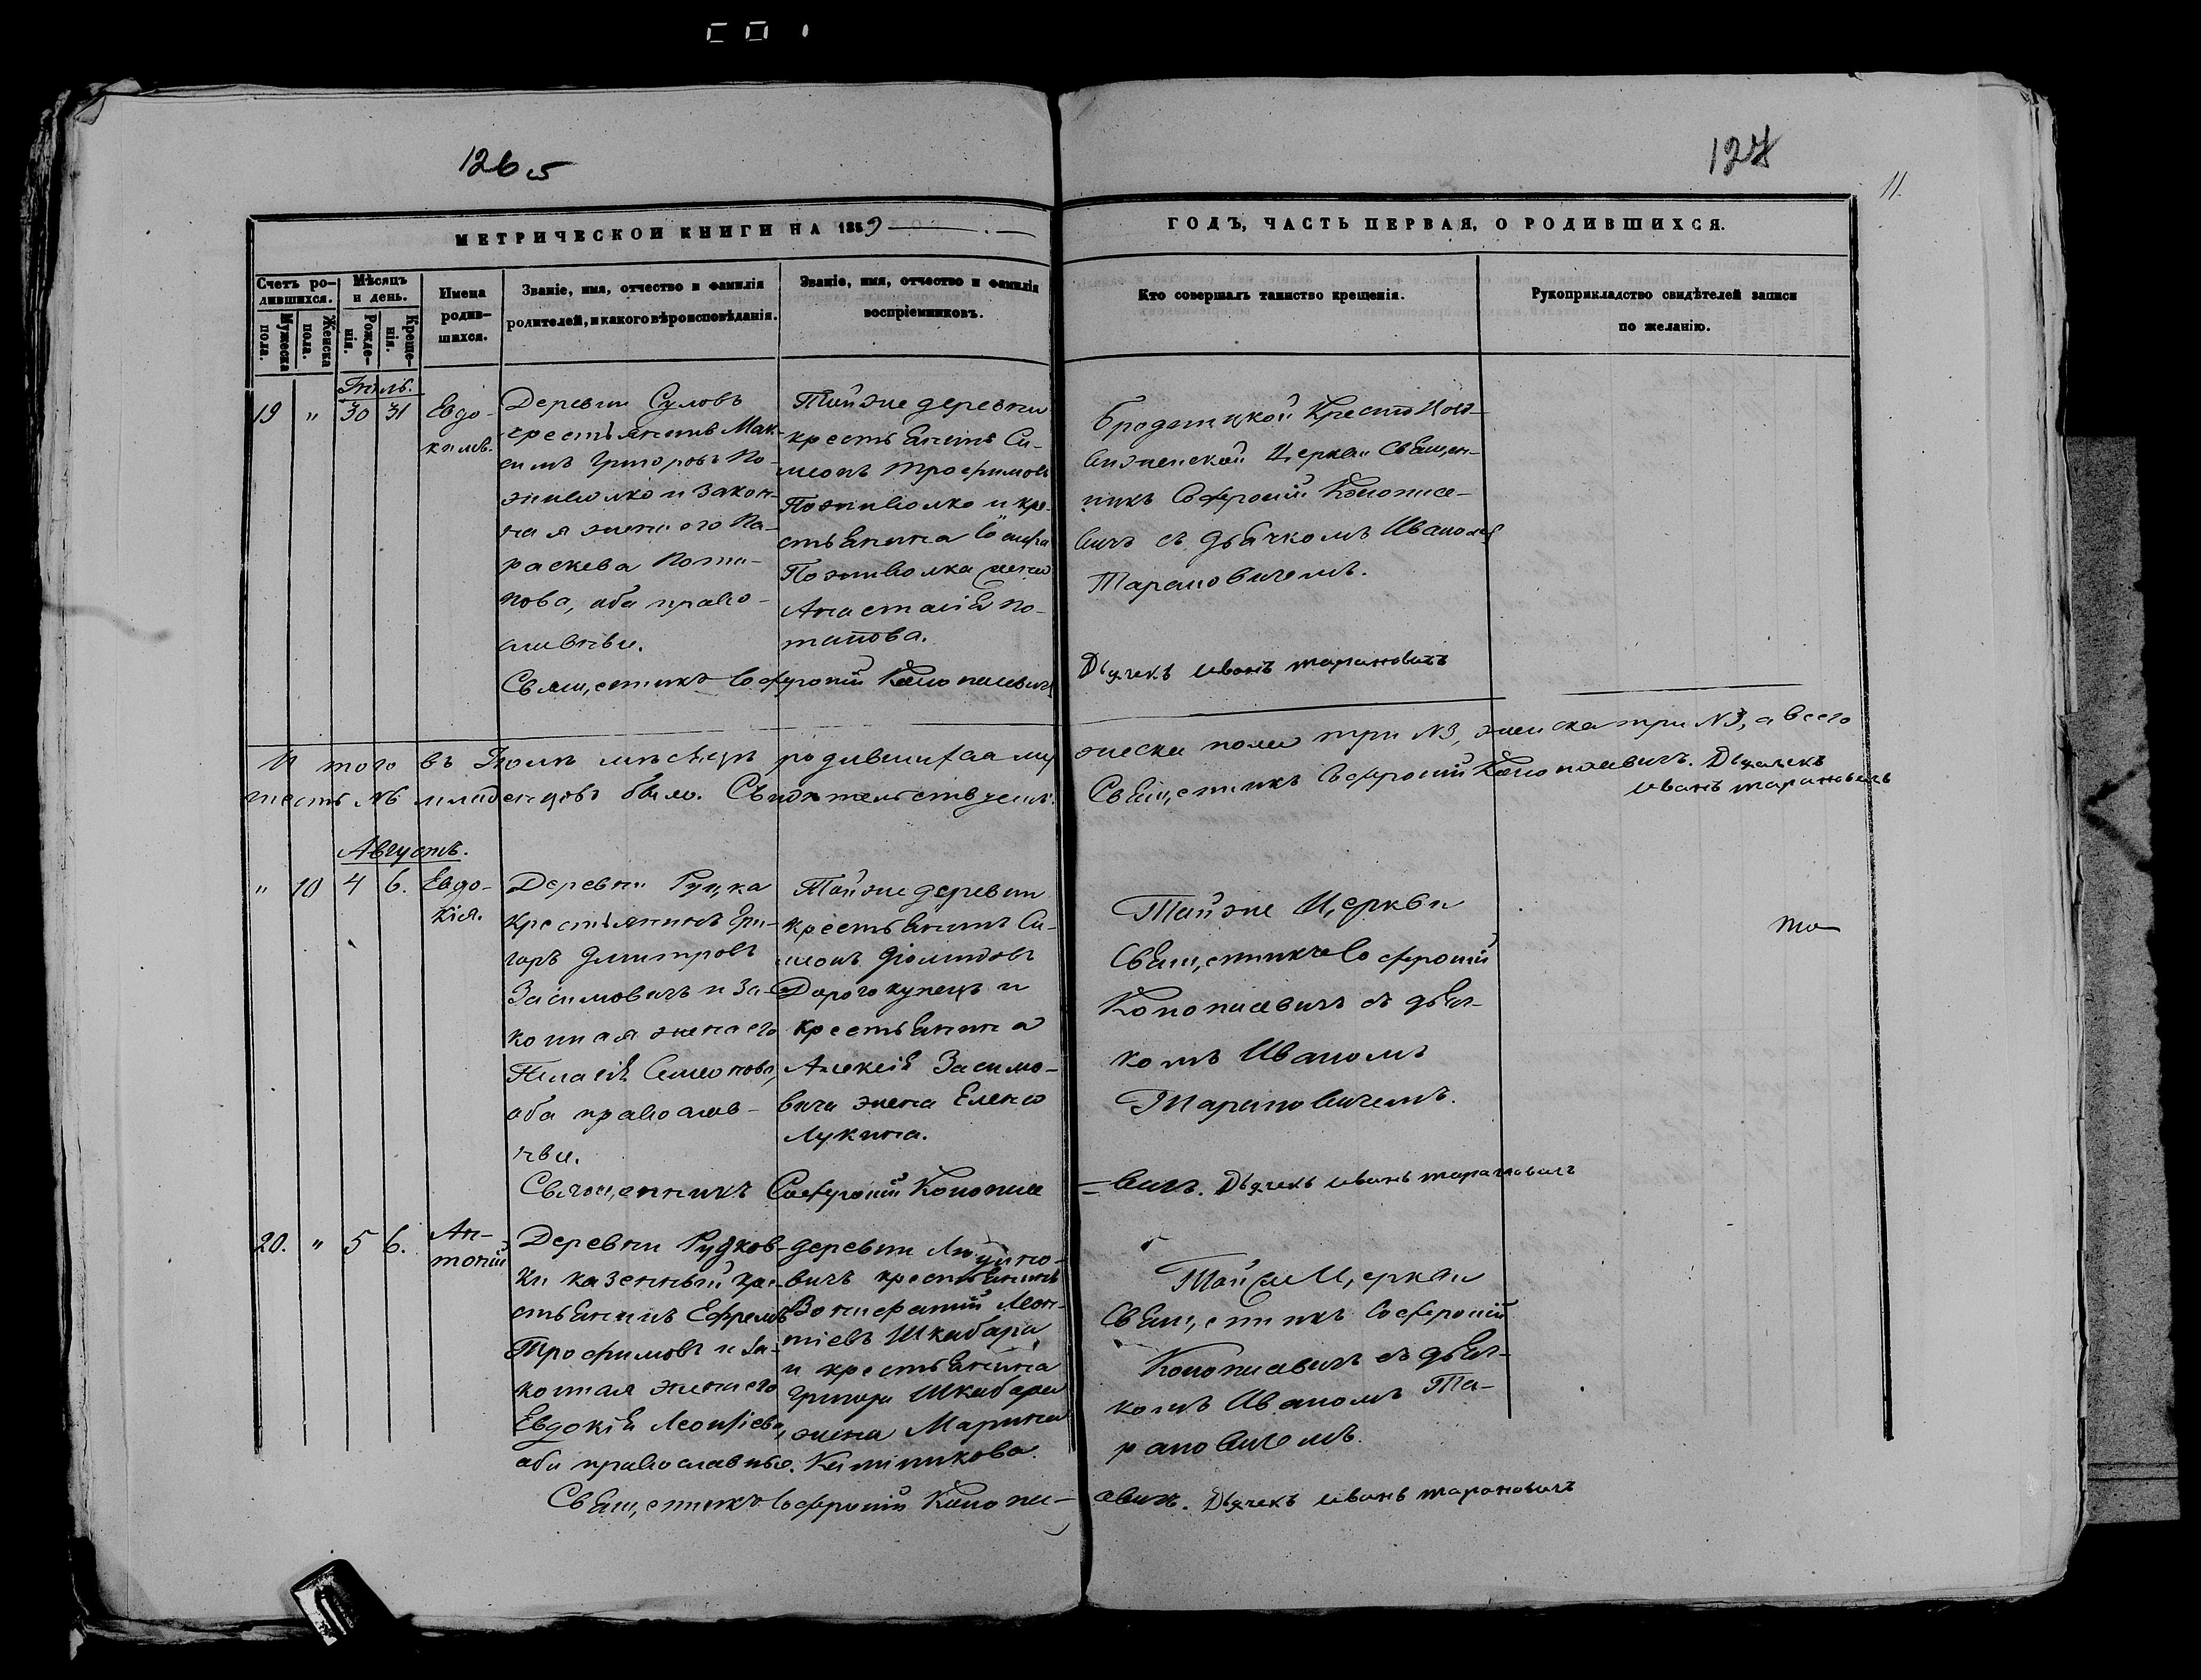 126 об
127
11.
МЕТРИЧЕСКОЙ КНИГИ НА 1859
ГОДЪ, ЧАСТЬ ПЕРВАЯ, О РОДИВШИХСЯ.
Счетъ ро-
дившихся.
Мужеска
пола.
Женска
пола.
Мѣсяцъ
и день.
Рожде-
нія.
Креще-
нія.
Имена
родив-
шихся.
Званіе, имя, отчество и фамилія
родителей, и какого вѣроисповѣданія.
Званіе, имя, отчество и фамилія
воспріемниковъ.
Кто совершалъ таинство крещенія.
Рукоприкладство свидѣтелей записи
по желанію.
Іюль.
19 " 30 31
Евдо-
кимъ.
Деревни Суловъ
крестьянинъ Мак-
симъ Григоровъ По-
живолко и закон-
ная жена его Па-
раскева Пота-
пова, оба право-
славные.
Тойже деревни
крестьянинъ Си-
меонъ Трофимовъ
Поживолко и кре-
стьянина
Поживолка жена
Анастасія По-
тапова.
Кресто Воз-
движенской Церкви Священ-
никъ Софроній Конопасе-
вичъ съ дьячкомъ Иваномъ
Тарановичемъ.
Священникъ Софроній Конопасевичъ
Дьячекъ Иванъ Тарановичъ
И того въ Іюлѣ мѣсяцѣ родившихся му
жеска пола три №3, женска три №3, а всего
шесть №6 младенцовъ было. Свидѣтельствуемъ
Священникъ Софроній Конопасевичъ. Дьячекъ
Иванъ Тарановичъ
Августъ.
" 10 4 6.
Евдо-
кія.
Деревни
крестьянинъ Гри-
горъ Дмитровъ
Засимовичъ и за-
конная жена его
Пелагія Семенова,
оба православ-
ные.
Тойже деревни
крестьянинъ Си-
меонъ Діомидовъ
Дорогокупецъ и
крестьянина
Алексія Засимо-
вича жена Елена
Лукина.
Тойже Церкви
Священникъ Софроній
Конопасевичъ съ дьяч-
комъ Иваномъ
Тарановичемъ.
Священникъ Софроній Конопасе
-вичъ. Дьячекъ Иванъ Тарановичъ
20. " 5 6.
Ан-
тоній
Деревни Рудков-
ки казенный кре-
стьянинъ Ефремъ
Трофимовъ и за-
конная жена его
Евдокія Леонтіева,
оба православные.
деревни
вичъ крестьянинъ
Вонифатій Леон-
тіевъ Шкабара
и крестьянина
Григорія Шкабары
жена Марина
Тойже Церкви
Священникъ Софроній
Конопасевичъ съ дьяч-
комъ Иваномъ Та-
рановичемъ.
Священникъ Софроній Конопа-
севичъ. Дьячекъ Иванъ Тарановичъ